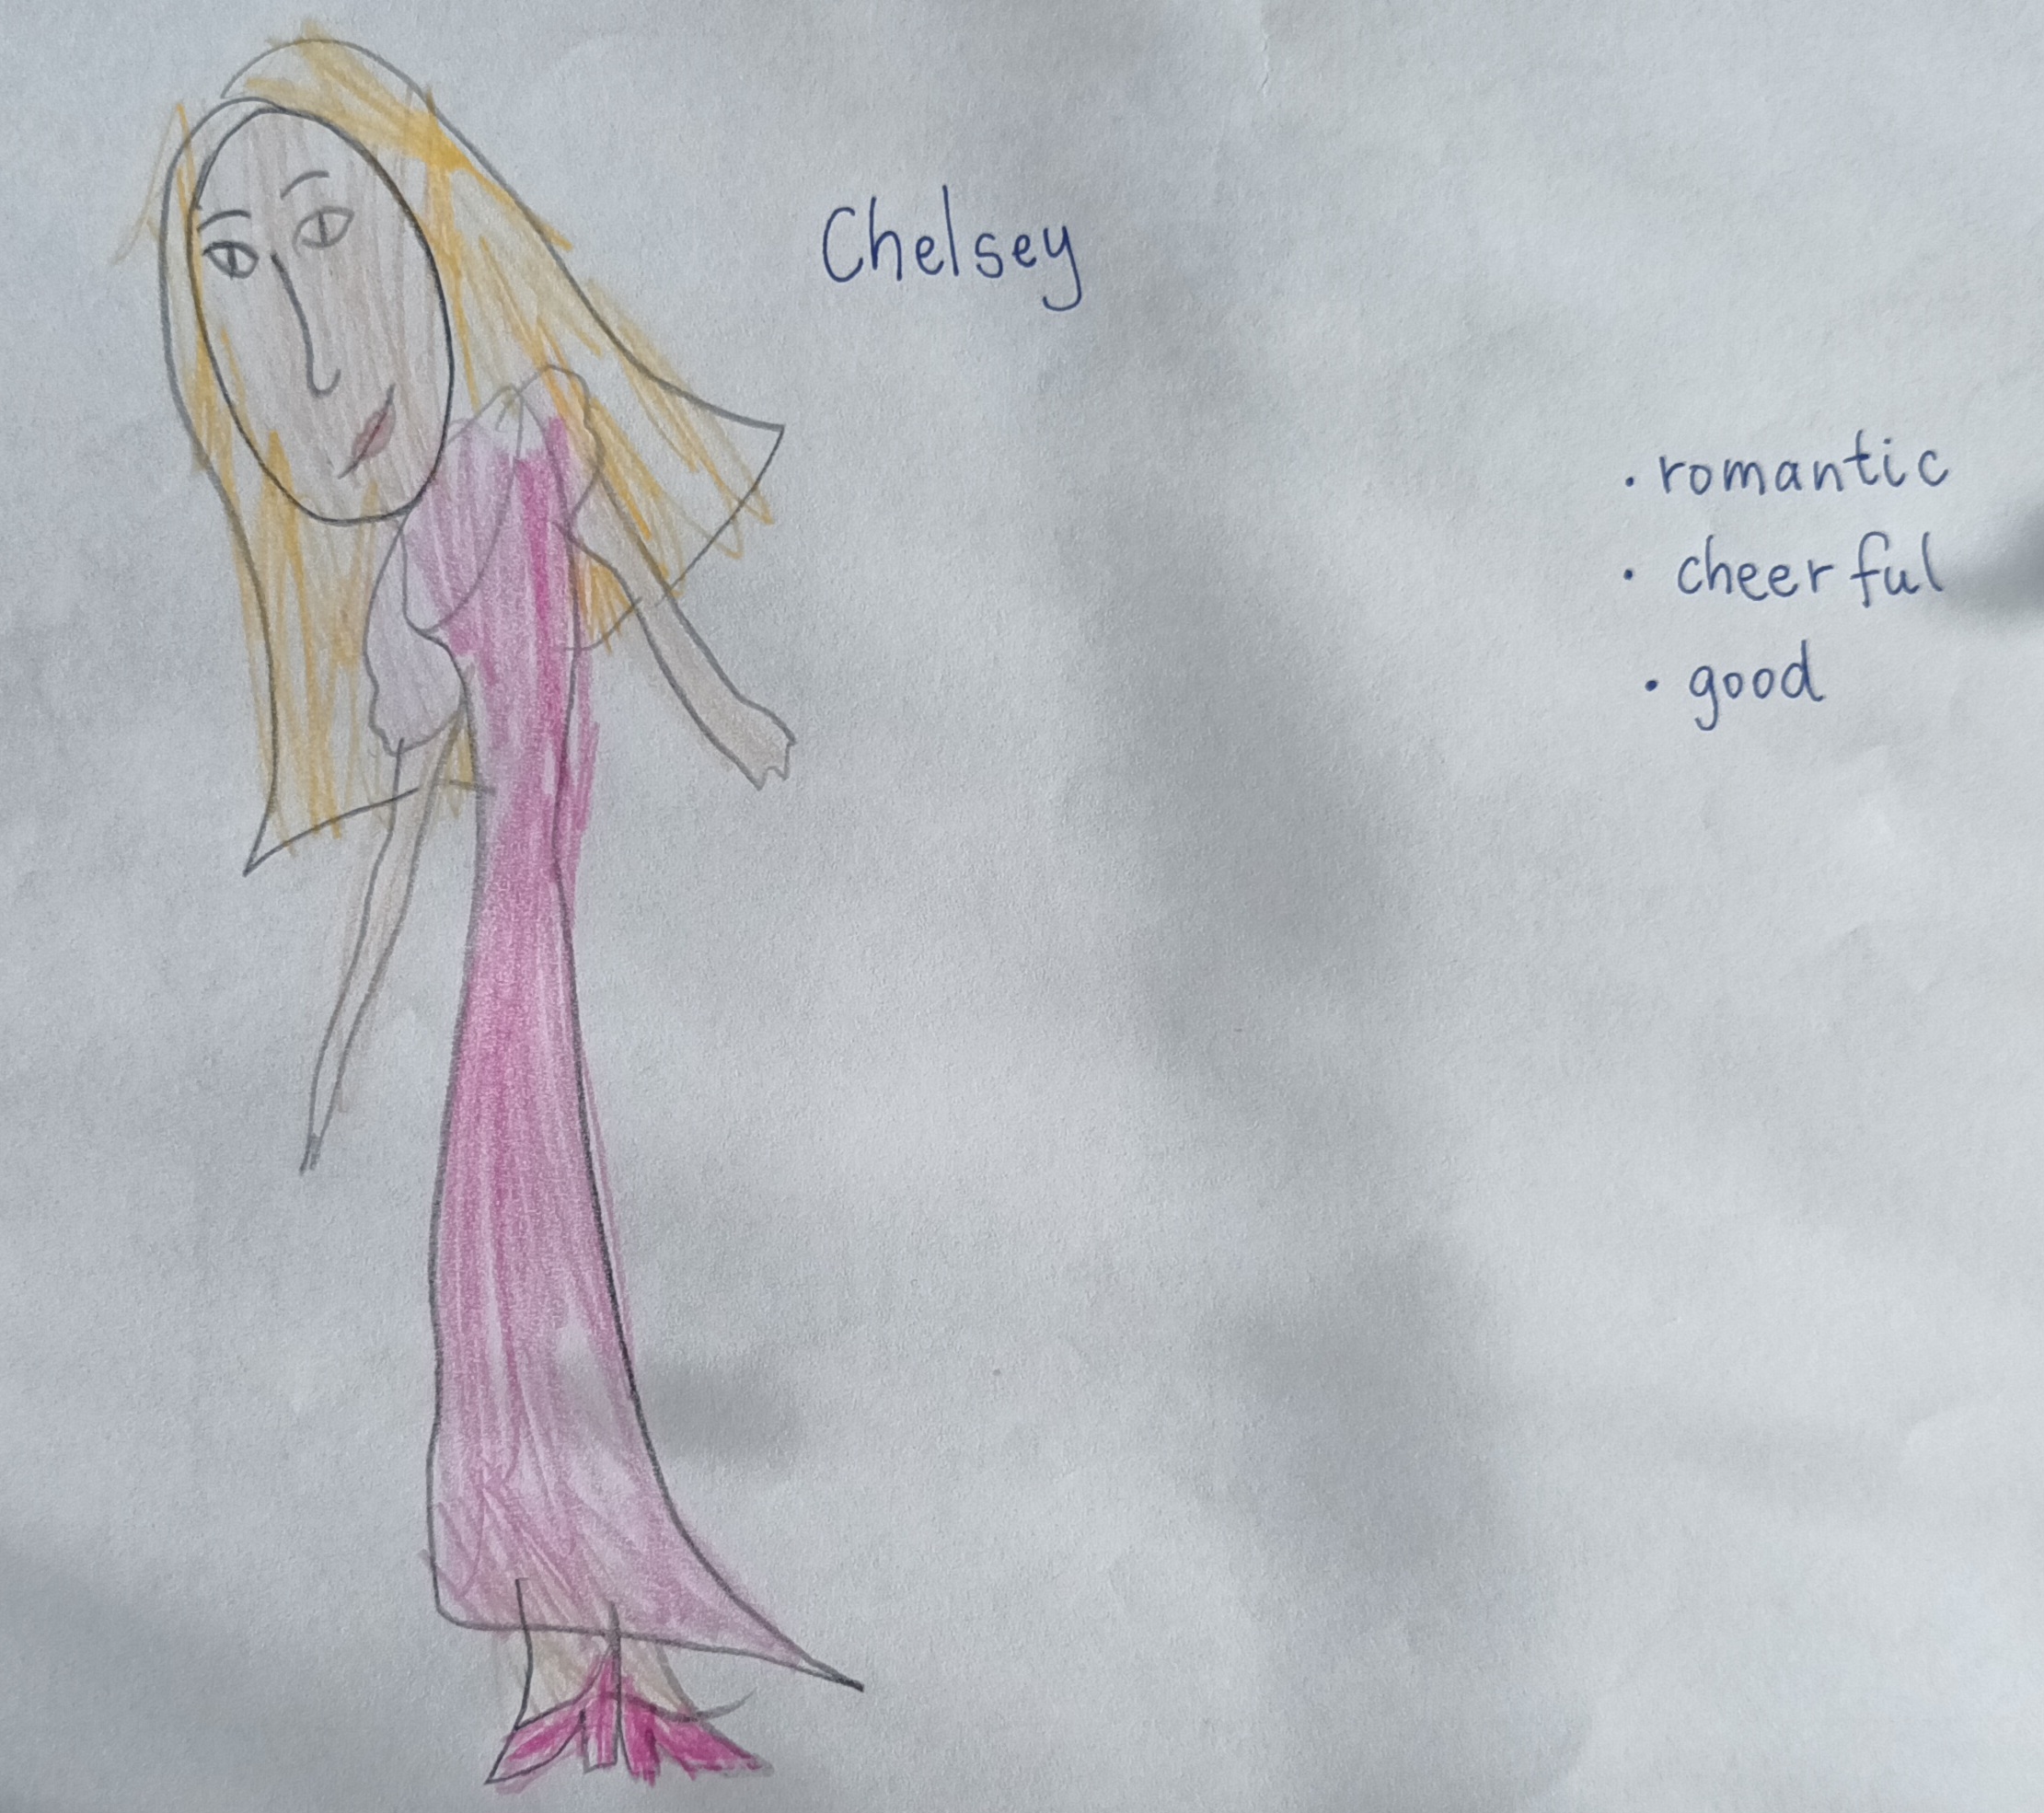 Chelsey
· romantic
· cheerful
· good